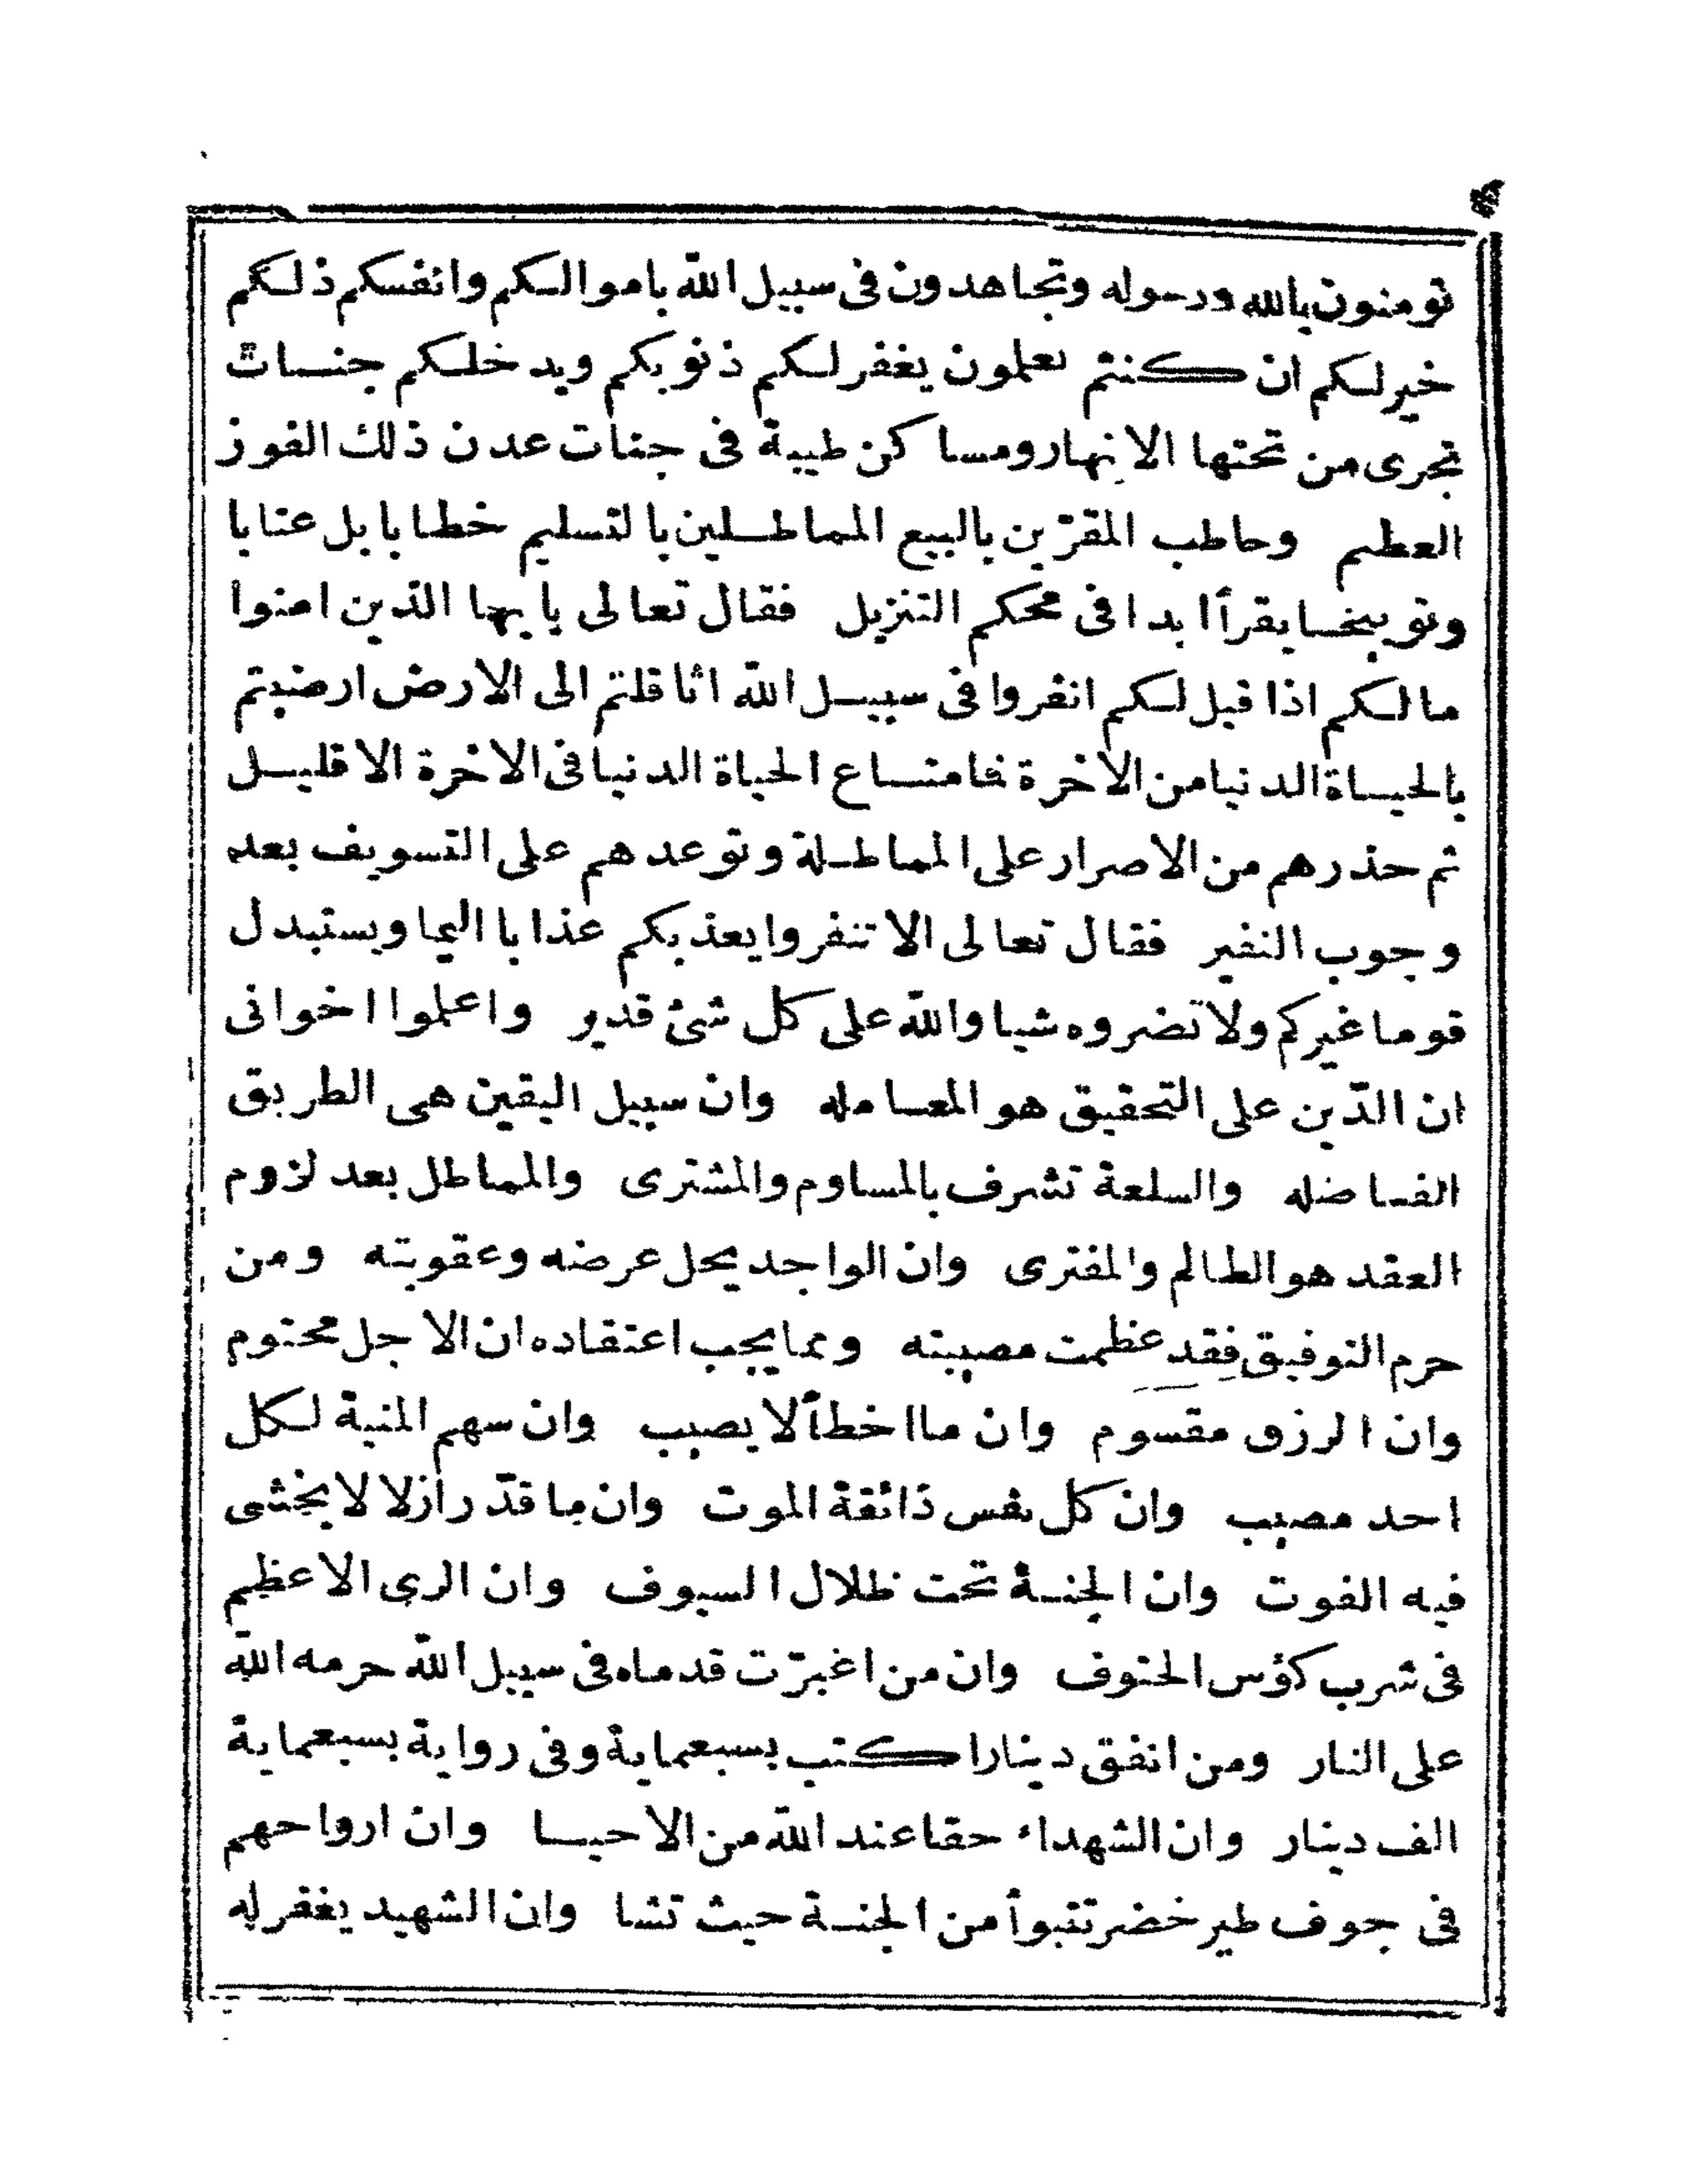 تومنون بالله ورسوله وتجاهدون فى سبيل الله باموالكم وانفسكم ذلكم
خيرلكم ان كنتم تعلمون يغفرلكم ذنوبكم ويدخلكم جنات
تجرى من تحتها الانهار ومساكن طيبة فى جنات عدن ذلك الفوز
العظيم وخاطب المقرّين بالبيع المماطلين بالتسليم خطابا بل عتابا
وتوبيخا يقرأ ابدا فى محكم التنزيل فقال تعالى يايها الذين امنوا
مالكم اذا قيل لكم انفروا فى سبيل الله اثاقلتم الى الارض ارضيتم
بالحياة الدنيا من الاخرة فما متاع الحياة الدنيا فى الاخرة الا قليل
ثم حذرهم من الاصرار على المماطلة وتوعدهم على التسويف بعد
وجوب النفير فقال تعالى الا تنفروا يعذبكم عذابا اليما ويستبدل
قوما غيركم ولا تضروه شيا والله على كل شئ قدير واعلموا اخوانى
ان الدّين على التحقيق هو المعامله وان سبيل اليقين هى الطريق
الفاضله والسلعة تشرف بالمساوم والمشترى والمماطل بعد لزوم
العقد هو الظالم والمفترى وان الواجد يحل عرضه وعقوبته ومن
حرم التوفيق فقد عظمت مصيبته ومما يجب اعتقاده ان الاجل محتوم
وان الرزق مقسوم وان ما اخطأ لا يصيب وان سهم المنية لكل
احد مصيب وان كل نفس ذائقة الموت وان ما قدّر ازلا لا يخشى
فيه الفوت وان الجنة تحت ظلال السيوف وان الرى الاعظم
فى شرب كؤس الحتوف وان من اغبرّت قدماه فى سبيل الله حرمه الله
على النار ومن انفق دينارا كتب بسبعماية وفى رواية بسبعماية
الف دينار وان الشهداء حقا عند الله من الاحيا وان ارواحهم
فى جوف طير خضر تتبوأ من الجنة حيث تشا وان الشهيد يغفر له